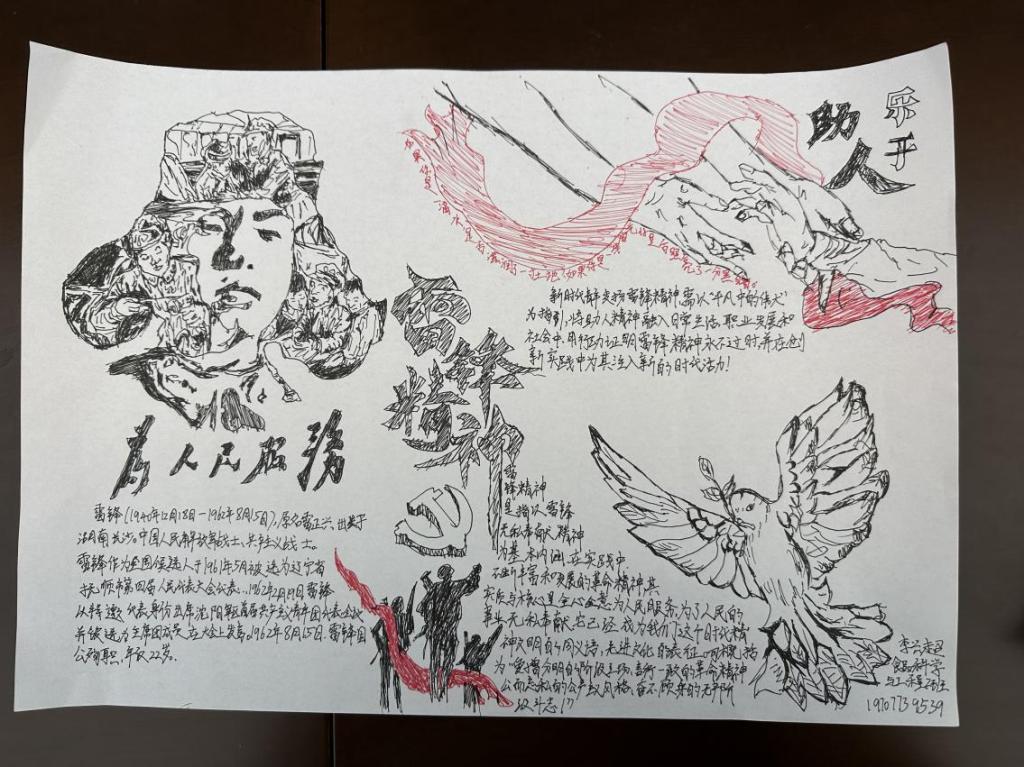 乐于
助人
雷锋
精神
为人民服务
雷锋(1940年12月18日-1962年8月15日),原名雷正兴,出生于
湖南长沙。中国人民解放军战士、共产主义战士。
雷锋作为全国候选人于1961年5月被选为辽宁省
抚顺市第四届人民代表大会代表。1962年2月19日雷锋
以特邀代表身份出席沈阳军区首届共产主义青年团代表会议
并被选为主席团成员在大会上发言。1962年8月15日雷锋因
公殉职,年仅22岁。
新时代鲜 发扬雷锋精神,需以“平凡中的伟大”
为指引,将助人精神融入日常生活、职业发展和
社会中,用行动证明雷锋精神永不过时,并在创
新实践中为其注入新的时代活力!
雷锋精神
是指以雷锋
无私奉献精神
为基本内涵,在实践中
不断丰富和发展的革命精神,其
实质与核心是全心全意为人民服务,为了人民的
事业无私奉献,它已经成为我们这个时代精
神文明的同义语、先进文化的表征。
为“爱憎分明的阶级立场、言行一致的革命精神
公而忘私的共产主义风格、奋不顾身的无产阶
级斗志”
食品科学
与工程 班